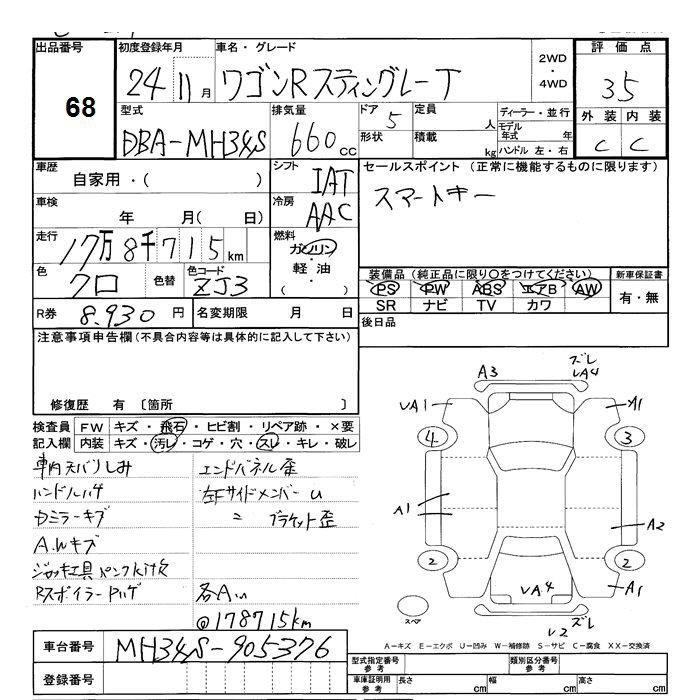 出品番号
68
初度登録年月
24 11月
車名・グレード
ワゴンRスティングレーT
2WD
・
4WD
評価点
3.5
型式
DBA-MH34S
排気量
660cc
ドア
5
形状
定員
人
積載
kg
ディーラー・並行
モデル年式 年
ハンドル 左・右
外装 内装
C C
車歴
自家用・( )
シフト
IAT
セールスポイント(正常に機能するものに限ります)
スマートキー
車検
年 月( 日)
冷房
AAC
走行
17万8千715km
燃料
ガソリン
軽油
( ・ )
色
クロ
色替
色コード
ZJ3
装備品(純正品に限り○をつけてください)
新車保証書
PS PW ABS エアB AW
有・無
SR ナビ TV カワ
R券
8,930円
名変期限 月 日
後日品
注意事項申告欄(不具合内容等は具体的に記入して下さい)
修復歴 有〔箇所 〕
検査員 FW キズ・飛石・ヒビ割・リペア跡・×要
記入欄 内装 キズ・汚レ・コゲ・穴・スレ・キレ・破レ
車内天バリしみ
ハンドルハゲ
Dミラーキズ
A.Wキズ
ジャッキ工具パンクキット欠
Rスポイラー Pハゲ
エンドパネル歪
左FサイドメンバーU
〃 ブラケット歪
各AU
@178715km
A3
ズレ
UA4
UA1
A1
4
3
A1
A2
2
2
UA4
A1
スペア
U2
ズレ
A-キズ E-エクボ U-凹み W-補修跡 S-サビ C-腐食 XX-交換済
車台番号
MH34S-905376
登録番号
型式指定番号
参考
類別区分番号
参考
車庫証明用
参考
長さ cm
幅 cm
高さ cm